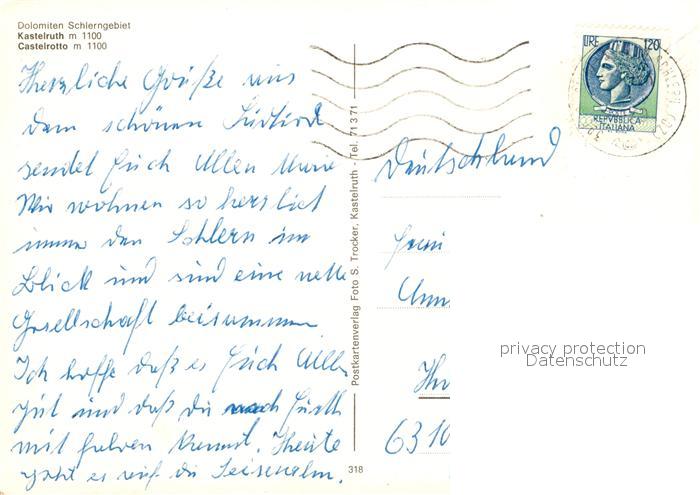 Dolomiten Schlerngebiet
Kastelruth m 1100
Castelrotto m 1100
LIRE 120
REPVBBLICA
ITALIANA
Herzliche Grüße aus
dem schönen Südtirol
sendet Euch Allen Marie
Wir wohnen so herrlich
immer den Schlern im
Blick und sind eine nette
Gesellschaft beisammen
Ich hoffe daß es Euch Allen
gut und daß du nach Fürth
mit fahren kannst. Heute
geht es auf die Seiseralm.
Deutschland
63 10
Postkartenverlag Foto S. Trocker, Kastelruth - Tel. 71 3 71
318
privacy protection
Datenschutz